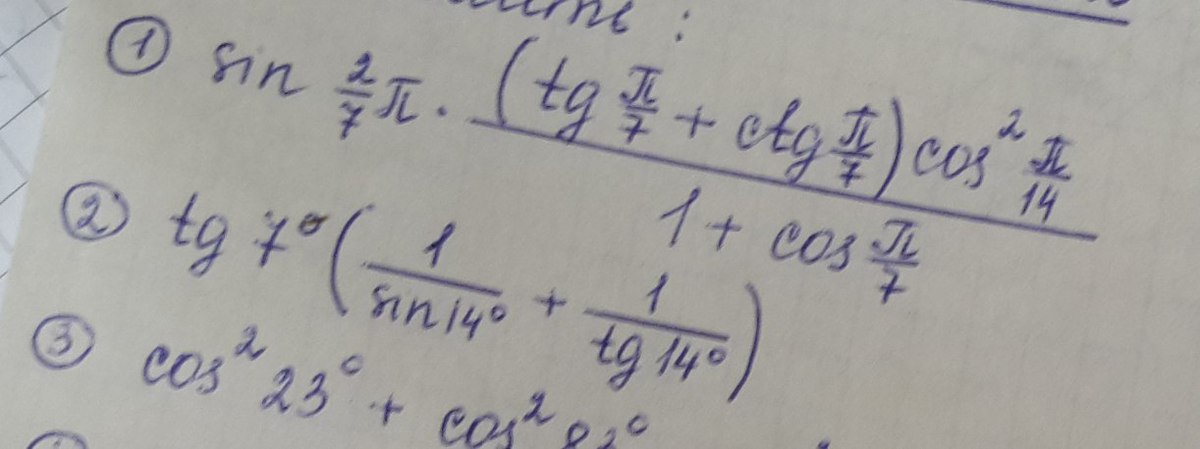 ① sin 2/7 π · (tg π/7 + ctg π/7) cos² π/14 / 1 + cos π/7
② tg 7° (1/sin 14° + 1/tg 14°)
③ cos² 23° + cos²